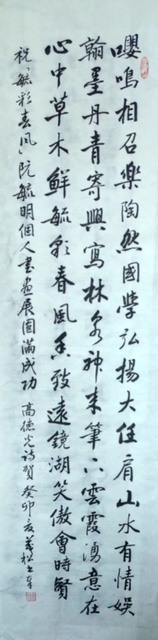 嚶鳴相召樂陶然國學弘揚大任肩山水有情娱
翰墨丹青寄興寫林泉神來筆下雲霞湧意在
心中草木鮮毓彩春風多致遠鏡湖笑傲會時賢
祝毓彩春風阮毓明個人書畫展圓滿成功 高德光詩賀 癸卯